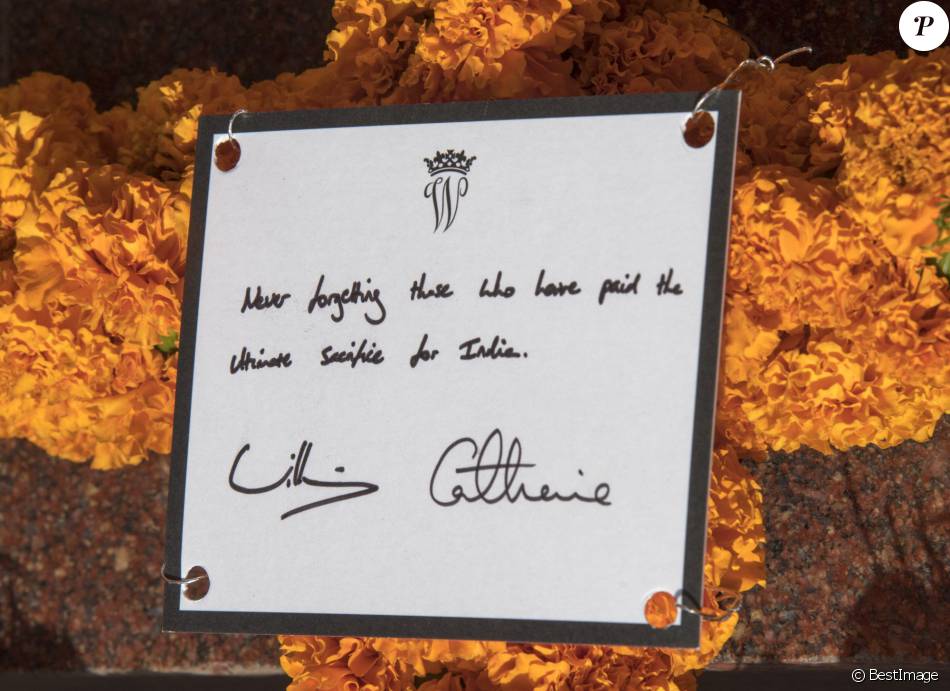 P
W
Never forgetting those who have paid the
ultimate sacrifice for India.
William Catherine
© BestImage